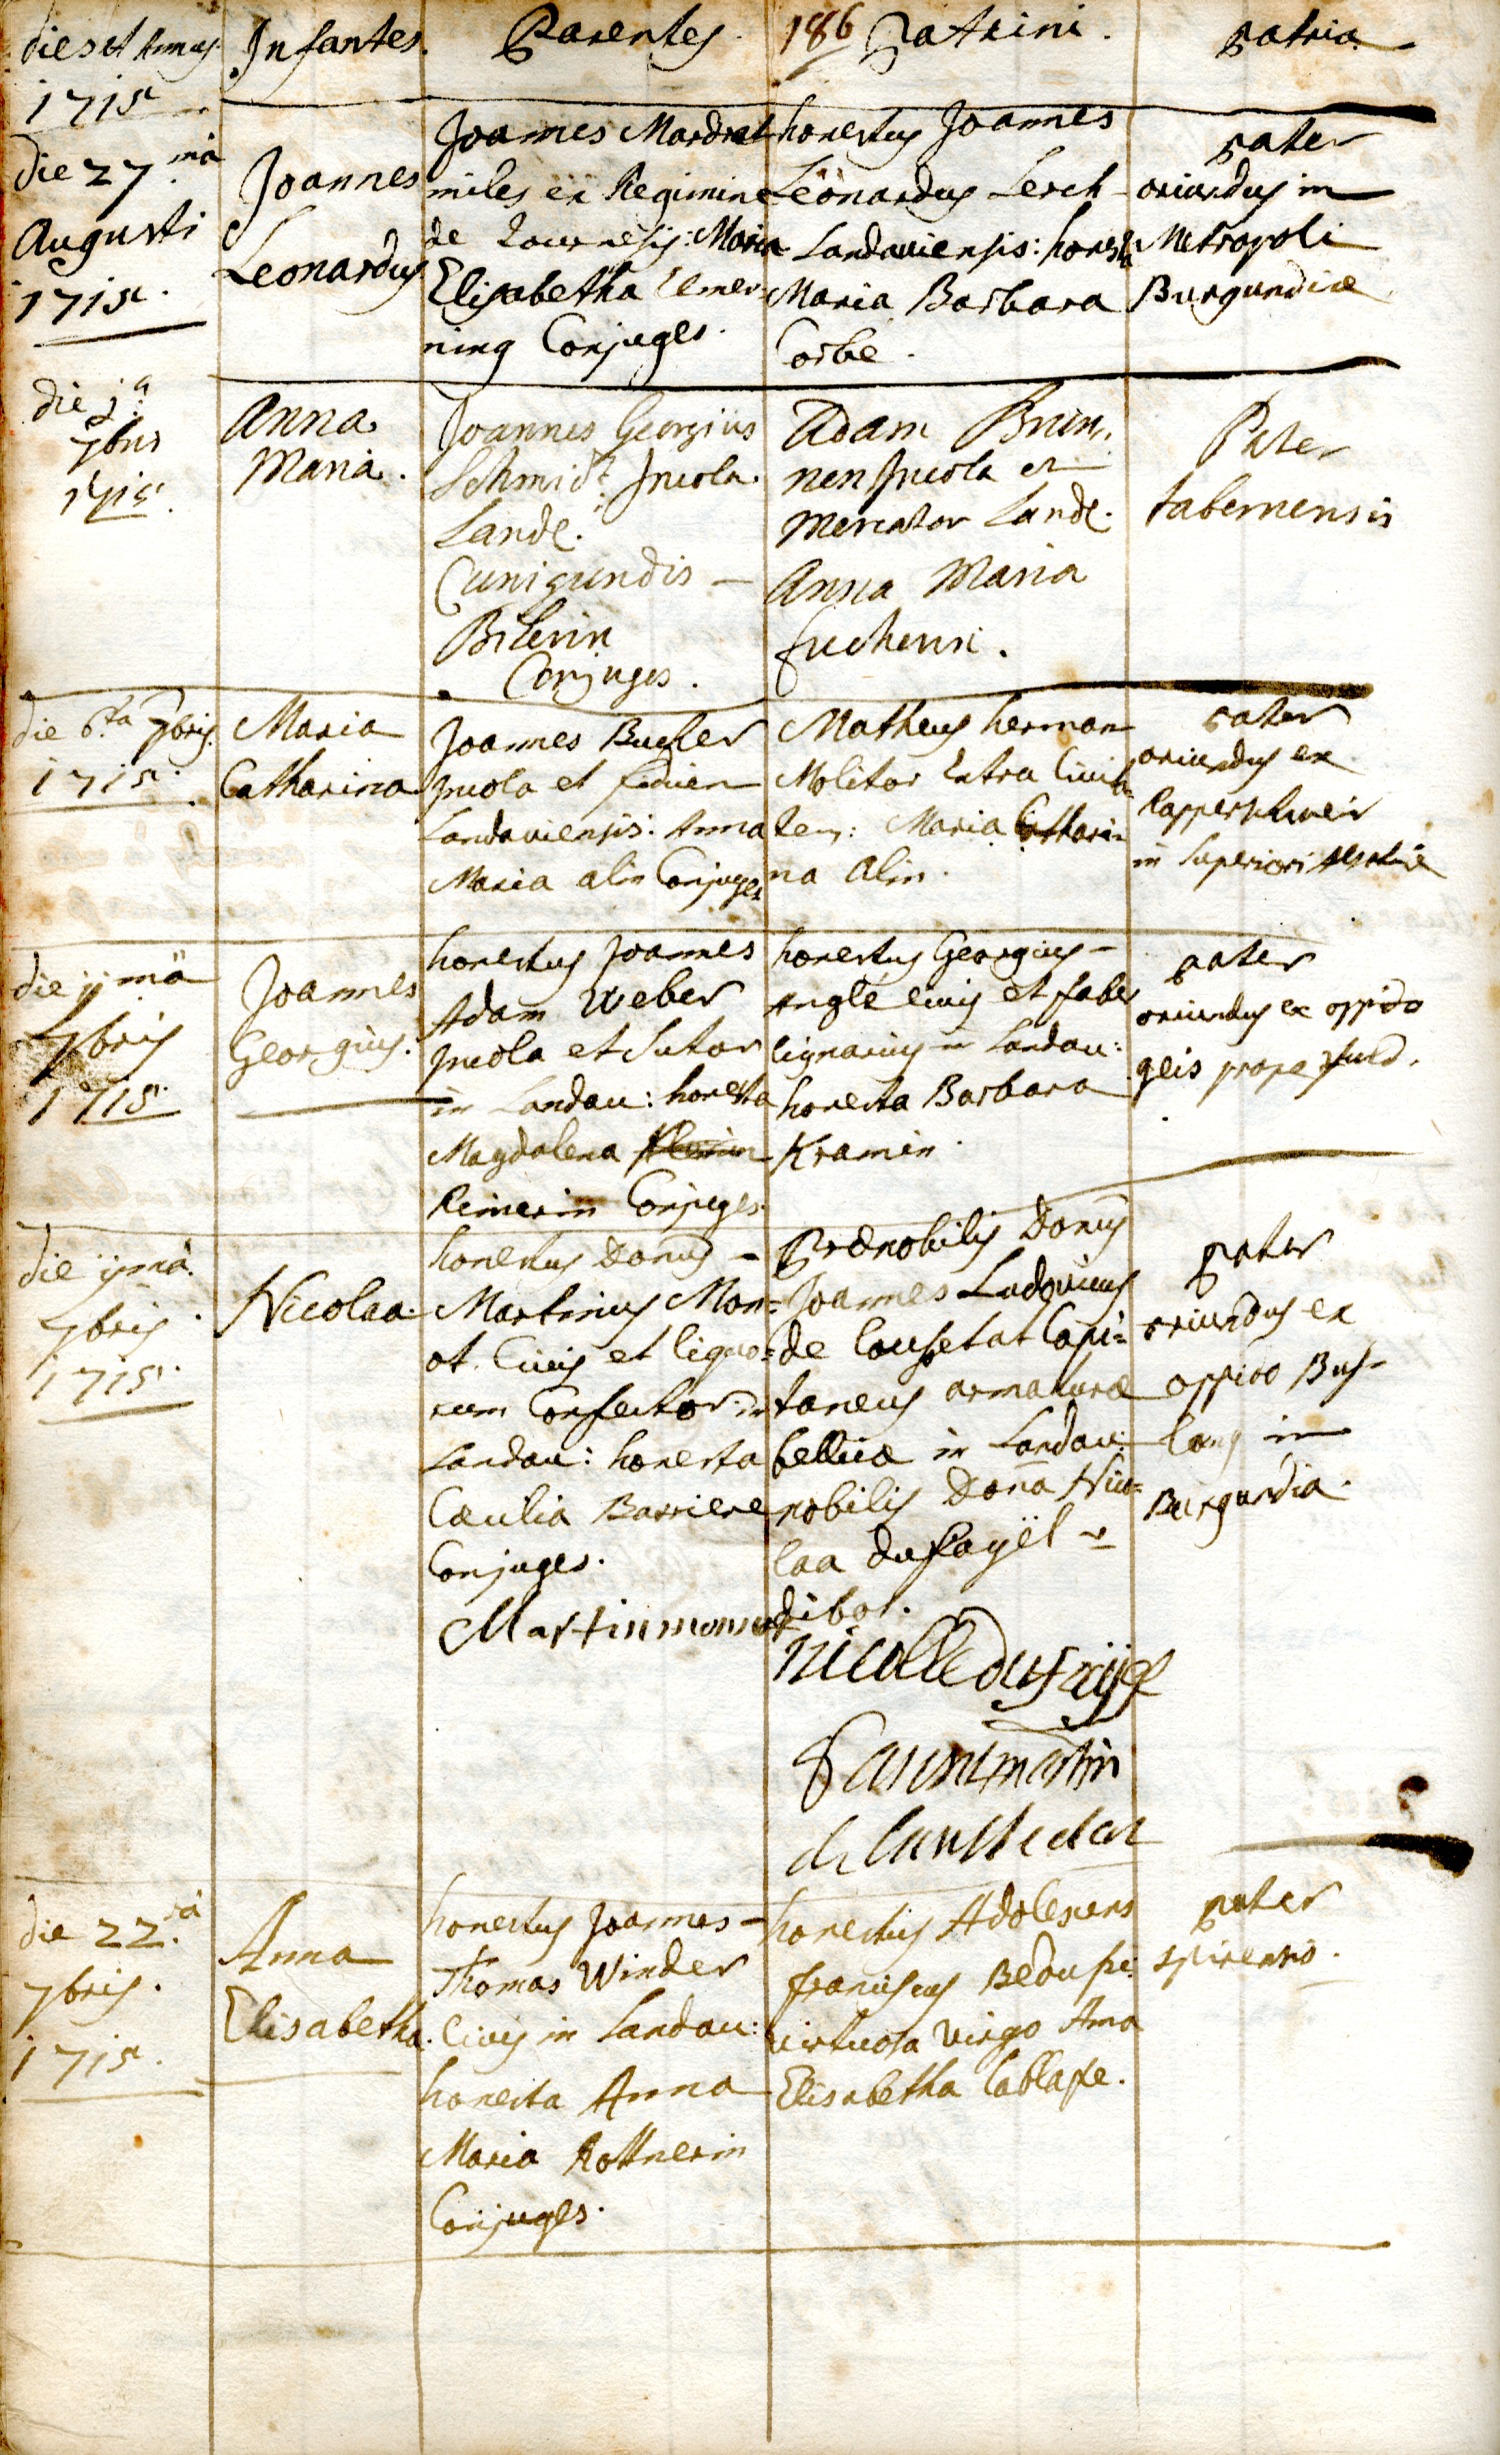 dies et Annus
1715
Infantes.
Parentes.
186
Patrini.
patria
die 27 mâ
Augusti
1715.
Joannes
Leonardus
Joannes Mardret
miles ex Regimine
de Tournesis: Maria
Elisabetha Emer-
ning Conjuges.
honestus Joannes
Leonardus Lerch
Landaviensis: honesta
Maria Barbara
Corbe.
pater
oriundus in
Metropoli
Burgundiæ
die 1a
7bris
1715.
Anna
Maria.
Joannes Georgius
Schmidt Incola
Land.
Cunigundis
Bilerin
Conjuges.
Adam Brun,
nen Incola et
Mercator Land.
Anna Maria
fuchensi.
Pater
tabernensis
die 6.ta 7bris.
1715.
Maria
Catharina
Joannes Bucher
Incola et
Landaviensis: Anna
Maria alin Conjuges
Matheus herman
Molitor Extra Civita
tem: Maria Cathari-
na Alin.
pater
oriundus ex
Rapperschweir
in Superiori Alsatiæ
die 11 mâ
7bris
1715.
Joannes
Georgius.
honestus Joannes
Adam Weber
Incola et Sutor
in Landau: honesta
Magdalena
Reimerin Conjuges.
honestus Georgius
Angle civis et faber
lignarius in Landau:
honesta Barbara
Kramin.
pater
oriundus ex oppido
geis prope fuld.
die 11 mâ.
7bris.
1715.
Nicolaa.
honestus Donus
Martinus Mon=
ot. Civis et ligno=
rum Confector in
Landau: honesta
Cæcilia Barriere
Conjuges.
Martin monnot
Prænobilis Donus
Joannes Ludovicus
de Conshetat Capi=
taneus armaturæ
bellicæ in Landau:
nobilis Dona Nico=
laa du fayël
dibot.
nicolle dufaijel
pater
oriundus ex
oppido Bus-
lang in
Burgundia.
die 22.â
7bris.
1715.
Anna
Elisabetha.
honestus Joannes
Thomas Winder
Civis in Landau:
honesta Anna
Maria Rottnerin
Conjuges.
honestus Adolescens
franciscus Bedupe:
virtuosa virgo Anna
Elisabetha Lablaxe.
pater
spirensis.